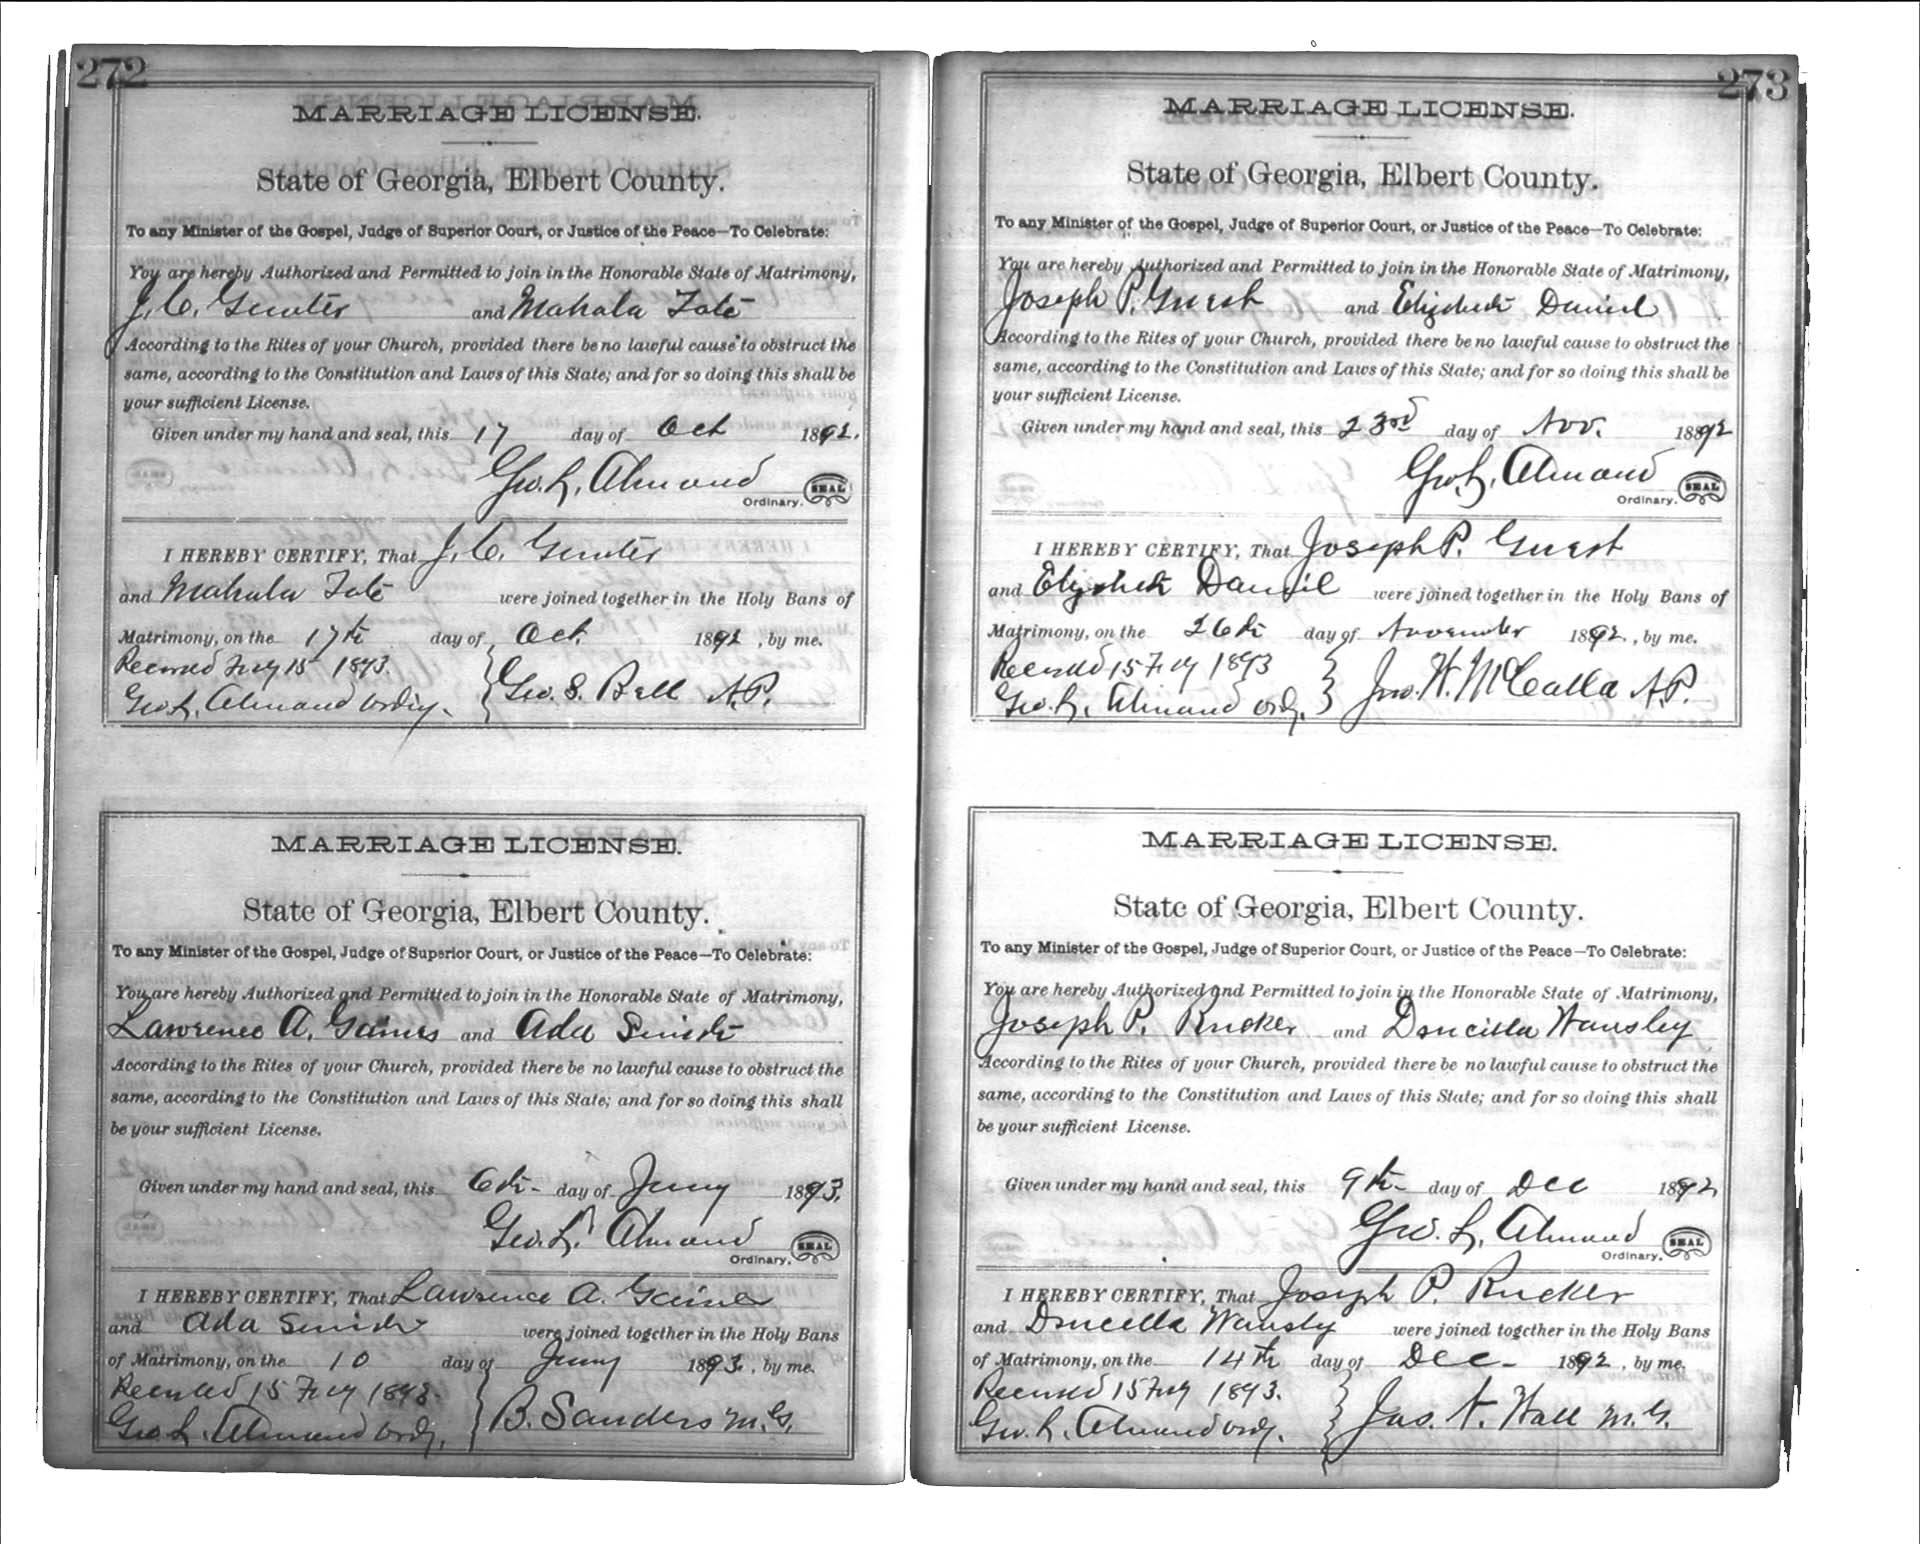 272
MARRIAGE LICENSE.
State of Georgia, Elbert County.
To any Minister of the Gospel, Judge of Superior Court, or Justice of the Peace—To Celebrate:
You are hereby Authorized and Permitted to join in the Honorable State of Matrimony,
J. C. Gunter and Mahala Tate
According to the Rites of your Church, provided there be no lawful cause to obstruct the
same, according to the Constitution and Laws of this State; and for so doing this shall be
your sufficient License.
Given under my hand and seal, this 17 day of Oct 1892.
Geo. L. Almand
Ordinary. SEAL
I HEREBY CERTIFY, That J. C. Gunter
and Mahala Tate were joined together in the Holy Bans of
Matrimony, on the 17th day of Oct. 1892, by me.
Recorded Feby 15 1893.
Geo. L. Almand Ordy. Geo. S. Bell N.P.
MARRIAGE LICENSE.
State of Georgia, Elbert County.
To any Minister of the Gospel, Judge of Superior Court, or Justice of the Peace—To Celebrate:
You are hereby Authorized and Permitted to join in the Honorable State of Matrimony,
Lawrence A. Gaines and Ada Smith
According to the Rites of your Church, provided there be no lawful cause to obstruct the
same, according to the Constitution and Laws of this State; and for so doing this shall
be your sufficient License.
Given under my hand and seal, this 6th day of Jany 1893.
Geo. L. Almand
Ordinary. SEAL
I HEREBY CERTIFY, That Lawrence A. Gaines
and Ada Smith were joined together in the Holy Bans
of Matrimony, on the 10 day of Jany 1893, by me.
Recorded 15 Feby 1893.
Geo. L. Almand Ordy. B. Sanders M.G.
273
MARRIAGE LICENSE.
State of Georgia, Elbert County.
To any Minister of the Gospel, Judge of Superior Court, or Justice of the Peace—To Celebrate:
You are hereby Authorized and Permitted to join in the Honorable State of Matrimony,
Joseph P. Guest and Elizabeth Daniel
According to the Rites of your Church, provided there be no lawful cause to obstruct the
same, according to the Constitution and Laws of this State; and for so doing this shall be
your sufficient License.
Given under my hand and seal, this 23rd day of Nov. 1892
Geo. L. Almand
Ordinary. SEAL
I HEREBY CERTIFY, That Joseph P. Guest
and Elizabeth Daniel were joined together in the Holy Bans of
Matrimony, on the 26th day of November 1892, by me.
Recorded 15 Feby 1893
Geo. L. Almand Ordy. Jno. H. McCalla N.P.
MARRIAGE LICENSE.
State of Georgia, Elbert County.
To any Minister of the Gospel, Judge of Superior Court, or Justice of the Peace—To Celebrate:
You are hereby Authorized and Permitted to join in the Honorable State of Matrimony,
Joseph P. Rucker and Drucilla Wansley
According to the Rites of your Church, provided there be no lawful cause to obstruct the
same, according to the Constitution and Laws of this State; and for so doing this shall
be your sufficient License.
Given under my hand and seal, this 9th day of Dec 1892
Geo. L. Almand
Ordinary. SEAL
I HEREBY CERTIFY, That Joseph P. Rucker
and Drucilla Wansley were joined together in the Holy Bans
of Matrimony, on the 14th day of Dec. 1892, by me.
Recorded 15 Feby 1893.
Geo. L. Almand Ordy. Jas. N. Wall M.G.